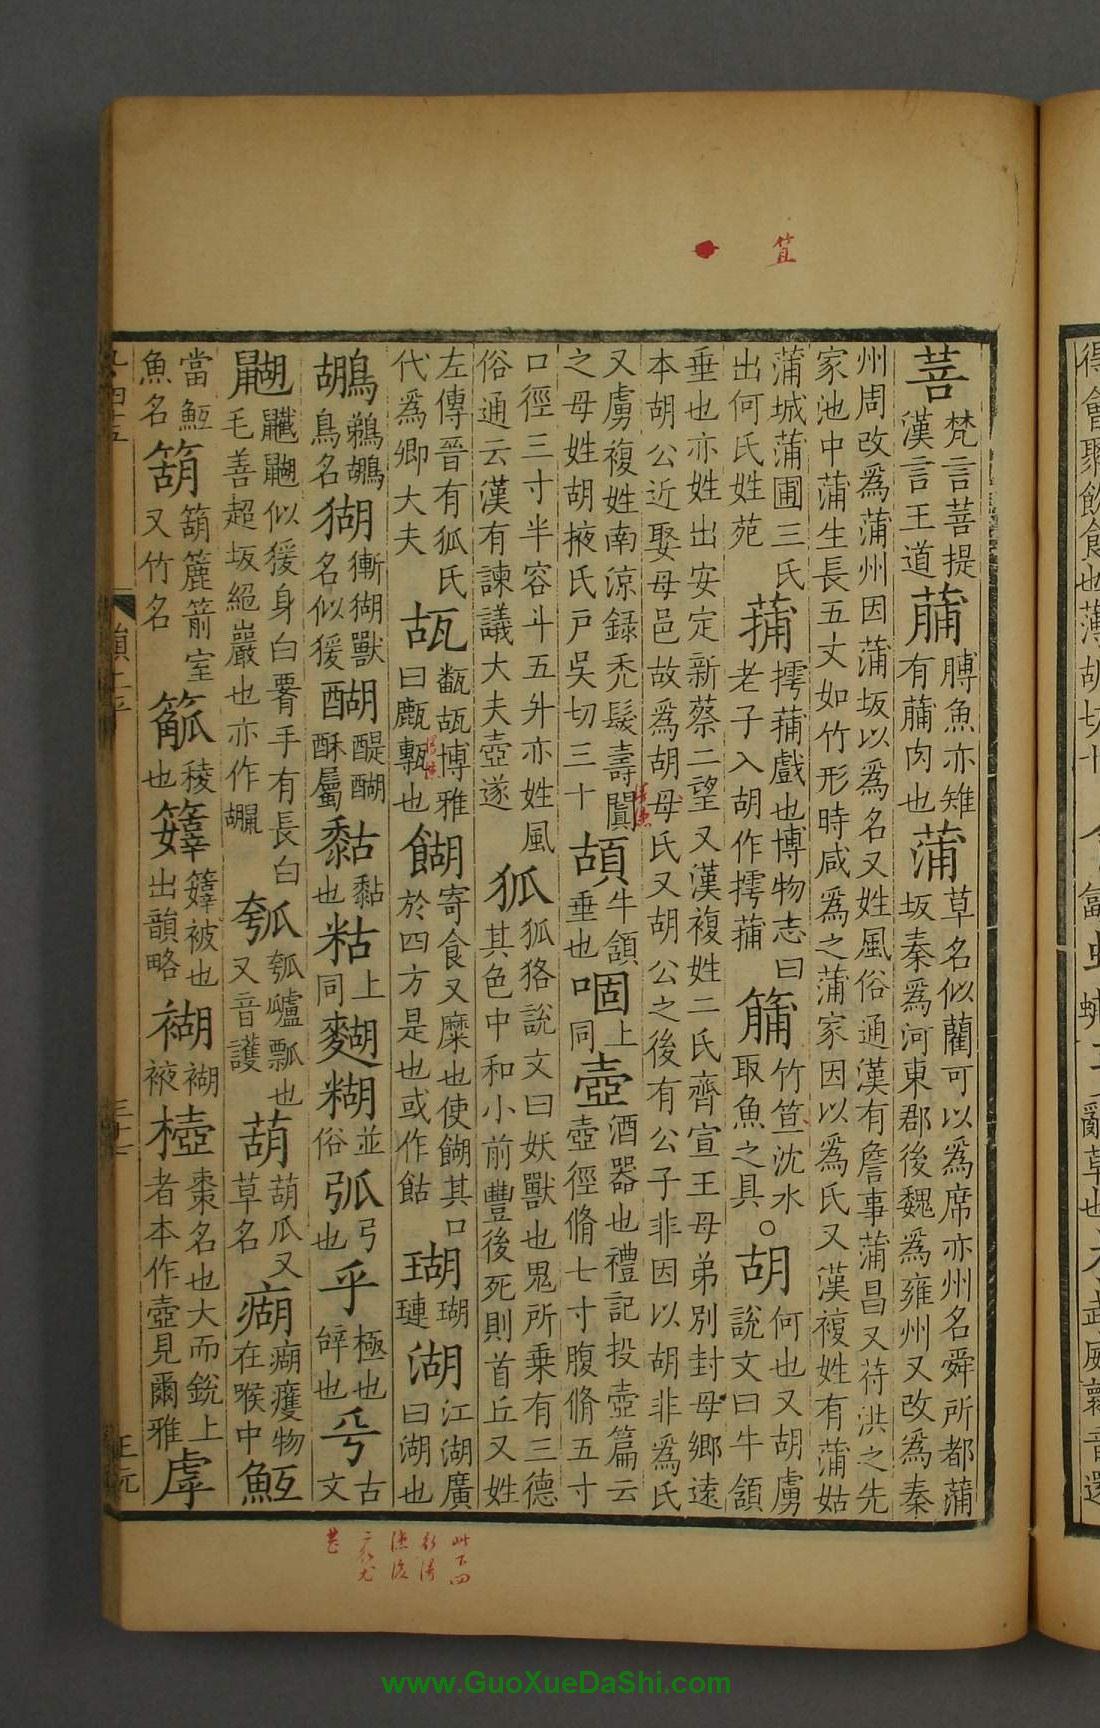 菩梵言菩提漢言王道膊魚亦雉有肉也蒲草名似藺可以爲席亦州名舜所都蒲坂秦爲河東郡後魏爲雍州又改爲秦
州周改爲蒲州因蒲坂以爲名又姓風俗通漢有詹事蒲昌又苻洪之先
家池中蒲生長五丈如竹形時咸爲之蒲家因以爲氏又漢複姓有蒲姑
蒲城蒲圃三氏出何氏姓苑蒱摴蒱戲也博物志曰老子入胡作摴蒱竹笪沈水取魚之具○胡何也又胡虜說文曰牛頷
垂也亦姓出安定新蔡二望又漢複姓二氏齊宣王母弟別封母鄉遠
本胡公近娶母邑故爲胡母氏又胡公之後有公子非因以胡非爲氏
又虜複姓南涼錄禿髮壽闐之母姓胡掖氏戶吳切三十頶牛頷垂也㗅上同壺酒器也禮記投壺篇云壺徑脩七寸腹脩五寸
口徑三寸半容斗五升亦姓風俗通云漢有諫議大夫壺遂狐狐狢說文曰妖獸也鬼所乗有三德其色中和小前豐後死則首丘又姓
左傳晉有狐氏代爲卿大夫瓳㼧瓳博雅曰甋甎也餬寄食又糜也使餬其口於四方是也或作䬫瑚瑚璉湖江湖廣曰湖也
鶘鵜鶘鳥名猢獑猢獸名似猨醐醍醐酥屬黏黏也粘上同䴯糊俗並弧弓也乎極也辝也𠂞古文
䶉䶫䶉似猨身白署手有長白毛善超坂絕巖也亦作𪕱瓠瓠瓢也又音護葫葫瓜又草名瘊瘊癭物在喉中魱
當魱魚名箶箶簏箭室又竹名䉉稜也䉉被也出韻略衚衚被楜棗名也大而銳上者本作壺見爾雅虖
笪
www.GuoXueDaShi.com